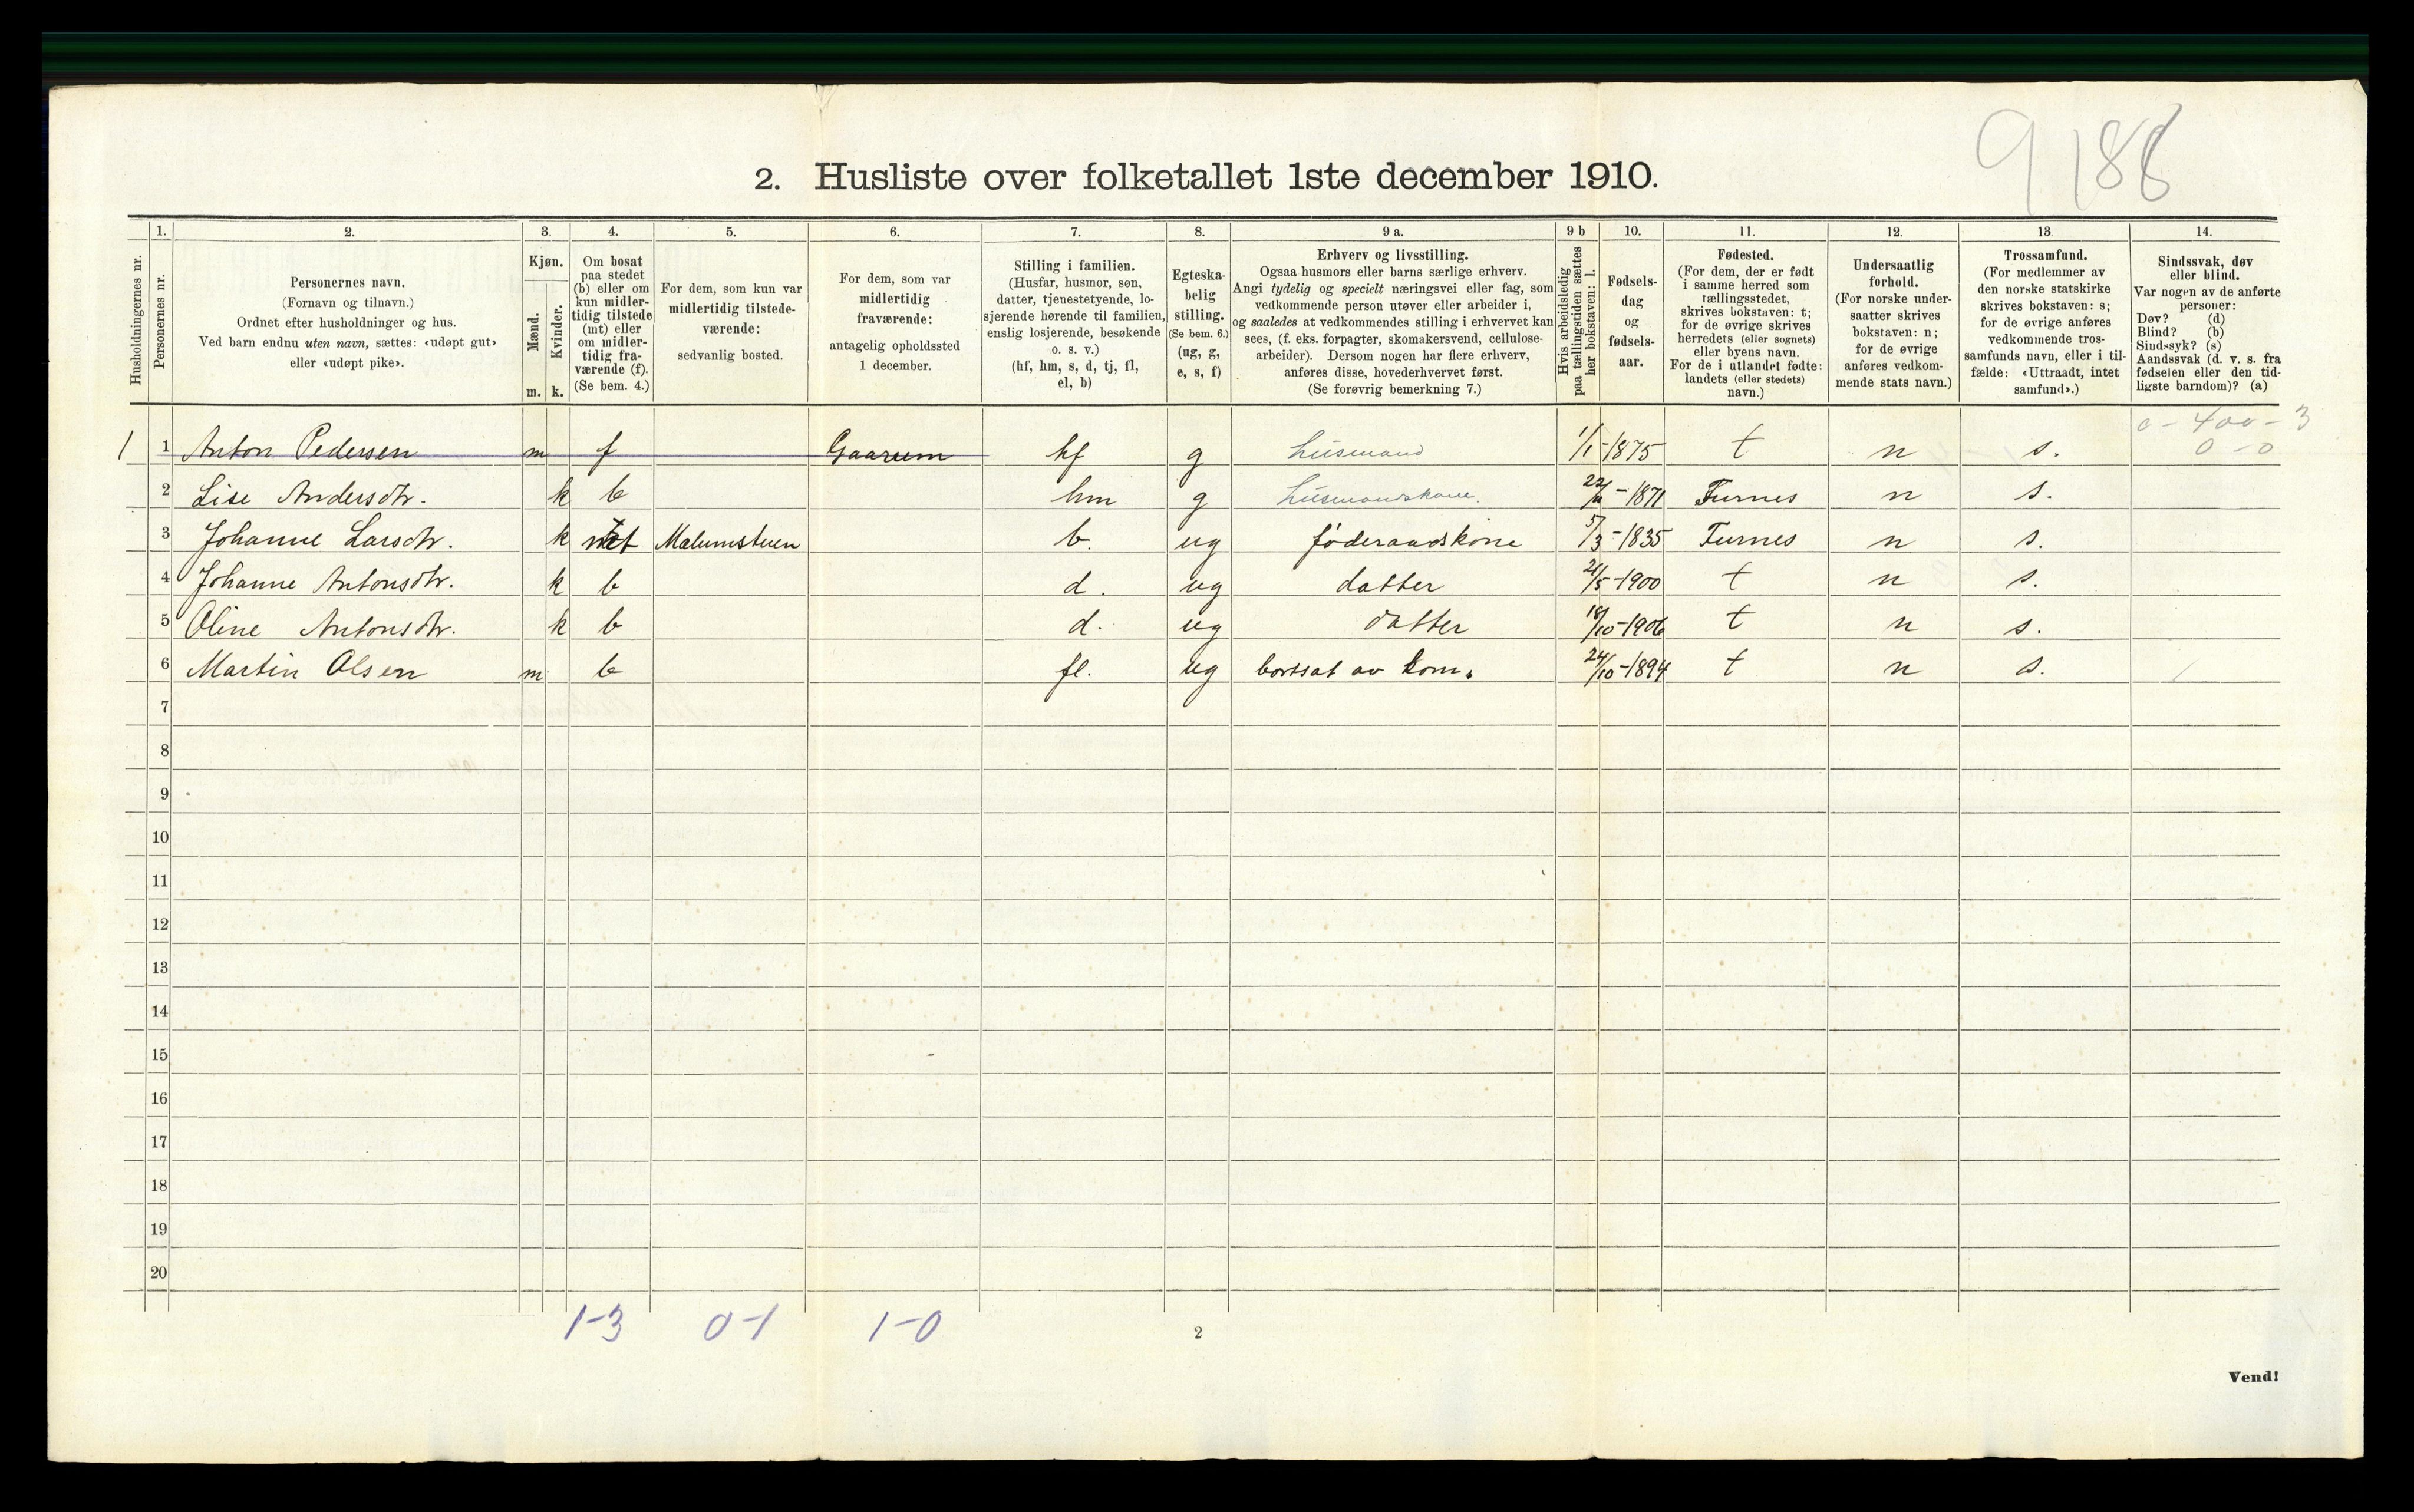 9 188
2. Husliste over folketallet 1ste december 1910.
1. 2. 3. 4. 5. 6. 7. 8. 9 a. 9 b 10. 11. 12. 13. 14.
Husholdningernes nr.
Personernes nr.
Personernes navn.
(Fornavn og tilnavn.)
Ordnet efter husholdninger og hus.
Ved barn endnu uten navn, sættes: «udøpt gut»
eller «udøpt pike».
Kjøn.
Mænd.
Kvinder.
m. k.
Om bosat
paa stedet
(b) eller om
kun midler-
tidig tilstede
(mt) eller
om midler-
tidig fra-
værende (f).
(Se bem. 4.)
For dem, som kun var
midlertidig tilstede-
værende:
sedvanlig bosted.
For dem, som var
midlertidig
fraværende:
antagelig opholdssted
1 december.
Stilling i familien.
(Husfar, husmor, søn,
datter, tjenestetyende, lo-
sjerende hørende til familien,
enslig losjerende, besøkende
o. s. v.)
(hf, hm, s, d, tj, fl,
el, b)
Egteska-
belig
stilling.
(Se bem. 6.)
(ug, g,
e, s, f)
Erhverv og livsstilling.
Ogsaa husmors eller barns særlige erhverv.
Angi tydelig og specielt næringsvei eller fag, som
vedkommende person utøver eller arbeider i,
og saaledes at vedkommendes stilling i erhvervet kan
sees, (f. eks. forpagter, skomakersvend, cellulose-
arbeider). Dersom nogen har flere erhverv,
anføres disse, hovederhvervet først.
(Se forøvrig bemerkning 7.)
Hvis arbeidsledig
paa tællingstiden sættes
her bokstaven: l.
Fødsels-
dag
og
fødsels-
aar.
Fødested.
(For dem, der er født
i samme herred som
tællingsstedet,
skrives bokstaven: t;
for de øvrige skrives
herredets (eller sognets)
eller byens navn.
For de i utlandet fødte:
landets (eller stedets)
navn.)
Undersaatlig
forhold.
(For norske under-
saatter skrives
bokstaven: n;
for de øvrige
anføres vedkom-
mende stats navn.)
Trossamfund.
(For medlemmer av
den norske statskirke
skrives bokstaven: s;
for de øvrige anføres
vedkommende tros-
samfunds navn, eller i til-
fælde: «Uttraadt, intet
samfund».)
Sindssvak, døv
eller blind.
Var nogen av de anførte
personer:
Døv? (d)
Blind? (b)
Sindssyk? (s)
Aandssvak (d. v. s. fra
fødselen eller den tid-
ligste barndom)? (a)
0 - 400 - 3
0 - 0
1 1 Anton Pedersen m f Gaarum hf g husmand 1/1-1875 t n s.
2 Lise Andersdtr. k b hm g husmandskone. -1871 Furnes n s.
3 Johanne Larsdtr. k Malumstuen b. ug føderaadskone 5/3-1835 Furnes n s.
4 Johanne Antonsdtr. k b d. ug datter /5-1900 t n s.
5 Oline Antonsdtr. k b d. ug datter 18/10-1906 t n s.
6 Martin Olsen m b fl. ug bortsat av kom. 24/10-1894 t n s.
7
8
9
10
11
12
13
14
15
16
17
18
19
20
1-3 0-1 1-0
2
Vend!